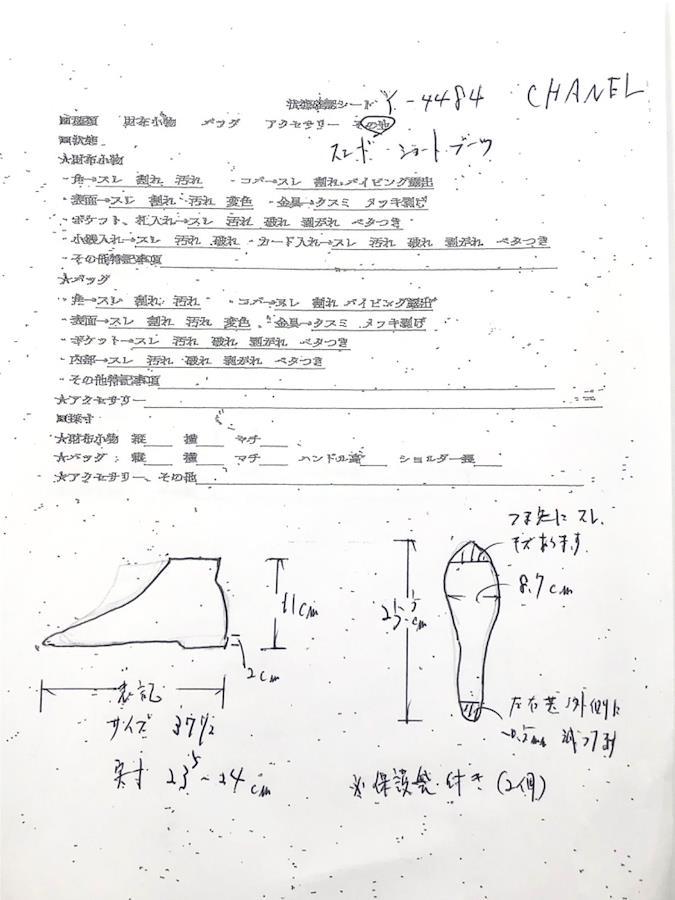 状態確認シート Y-4484 CHANEL
■種類 財布小物 バッグ アクセサリー その他
スエード ショートブーツ
■状態
★財布小物
・角→スレ 割れ 汚れ ・コバ→スレ 割れ パイピング露出
・表面→スレ 割れ 汚れ 変色 ・金具→クスミ メッキ剥げ
・ポケット、札入れ→スレ 汚れ 破れ 剥がれ ベタつき
・小銭入れ→スレ 汚れ 破れ ・カード入れ→スレ 汚れ 破れ 剥がれ ベタつき
・その他特記事項
★バッグ
・角→スレ 割れ 汚れ ・コバ→スレ 割れ パイピング露出
・表面→スレ 割れ 汚れ 変色 ・金具→クスミ メッキ剥げ
・ポケット→スレ 汚れ 破れ 剥がれ ベタつき
・内部→スレ 汚れ 破れ 剥がれ ベタつき
・その他特記事項
★アクセサリー
■採寸
★財布小物 縦 横 マチ
★バッグ 縦 横 マチ ハンドル高 ショルダー長
★アクセサリー、その他
つま先に スレ
キズあります
8.7cm
11cm
2cm
表記
サイズ 37 1/2
実寸 23.5~24cm
左右差 外側に
※保護袋付き(2個)